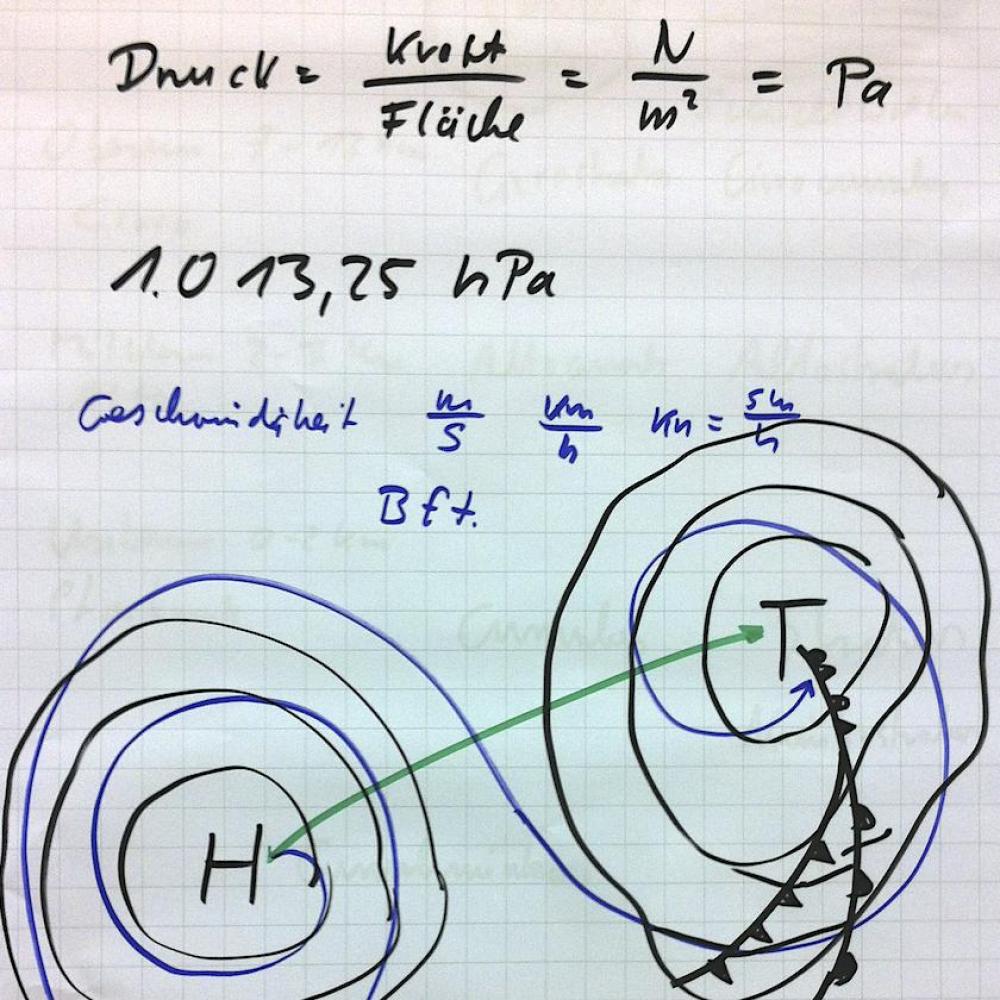 Druck = Kraft / Fläche = N / m² = Pa
1.013,25 hPa
Geschwindigkeit m/s km/h kn = sm/h
Bft.
T
H